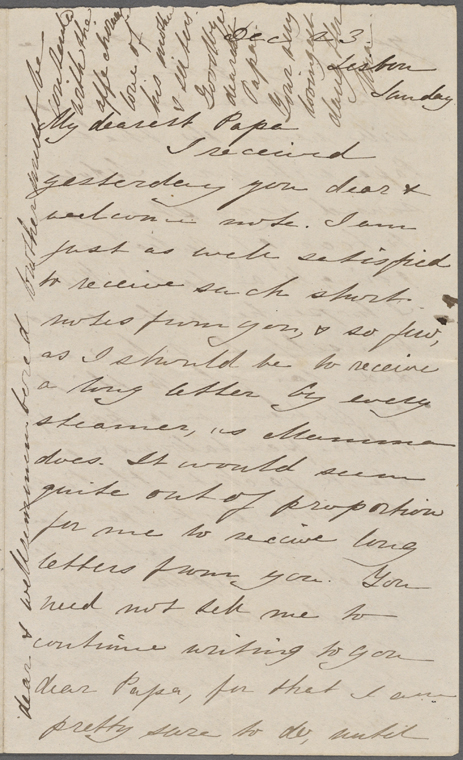 Dec 23
Lisbon
Sunday
My dearest Papa
I received
yesterday you dear &
welcome note. I am
just as well satisfied
to receive such short
notes from you, & so few,
as I should be to receive
a long letter by every
steamer, as Mamma
does. It would seem
quite out of proportion
for me to receive long
letters from you. You
need not tell me to
continue writing to you
dear Papa, for that I am
pretty sure to do, until
dear & well remembered brother must be
content
with the
affectionate
love of
his mother
& sisters.
Goodbye
dearest
Papa
Your very
youngest
daughter